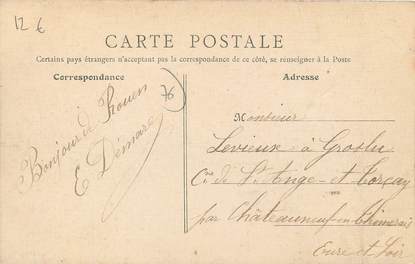 12 6
CARTE POSTALE
Certains pays étrangers n'acceptant pas la correspondance de ce côté, se renseigner à la Poste
Correspondance
Adresse
76
Bonjour de Rouen
E Démare
Monsieur
Levieux à Groslu
Cne de St Ange-et-Torçay
par Châteauneuf-en-Thimerais
Eure et Loir